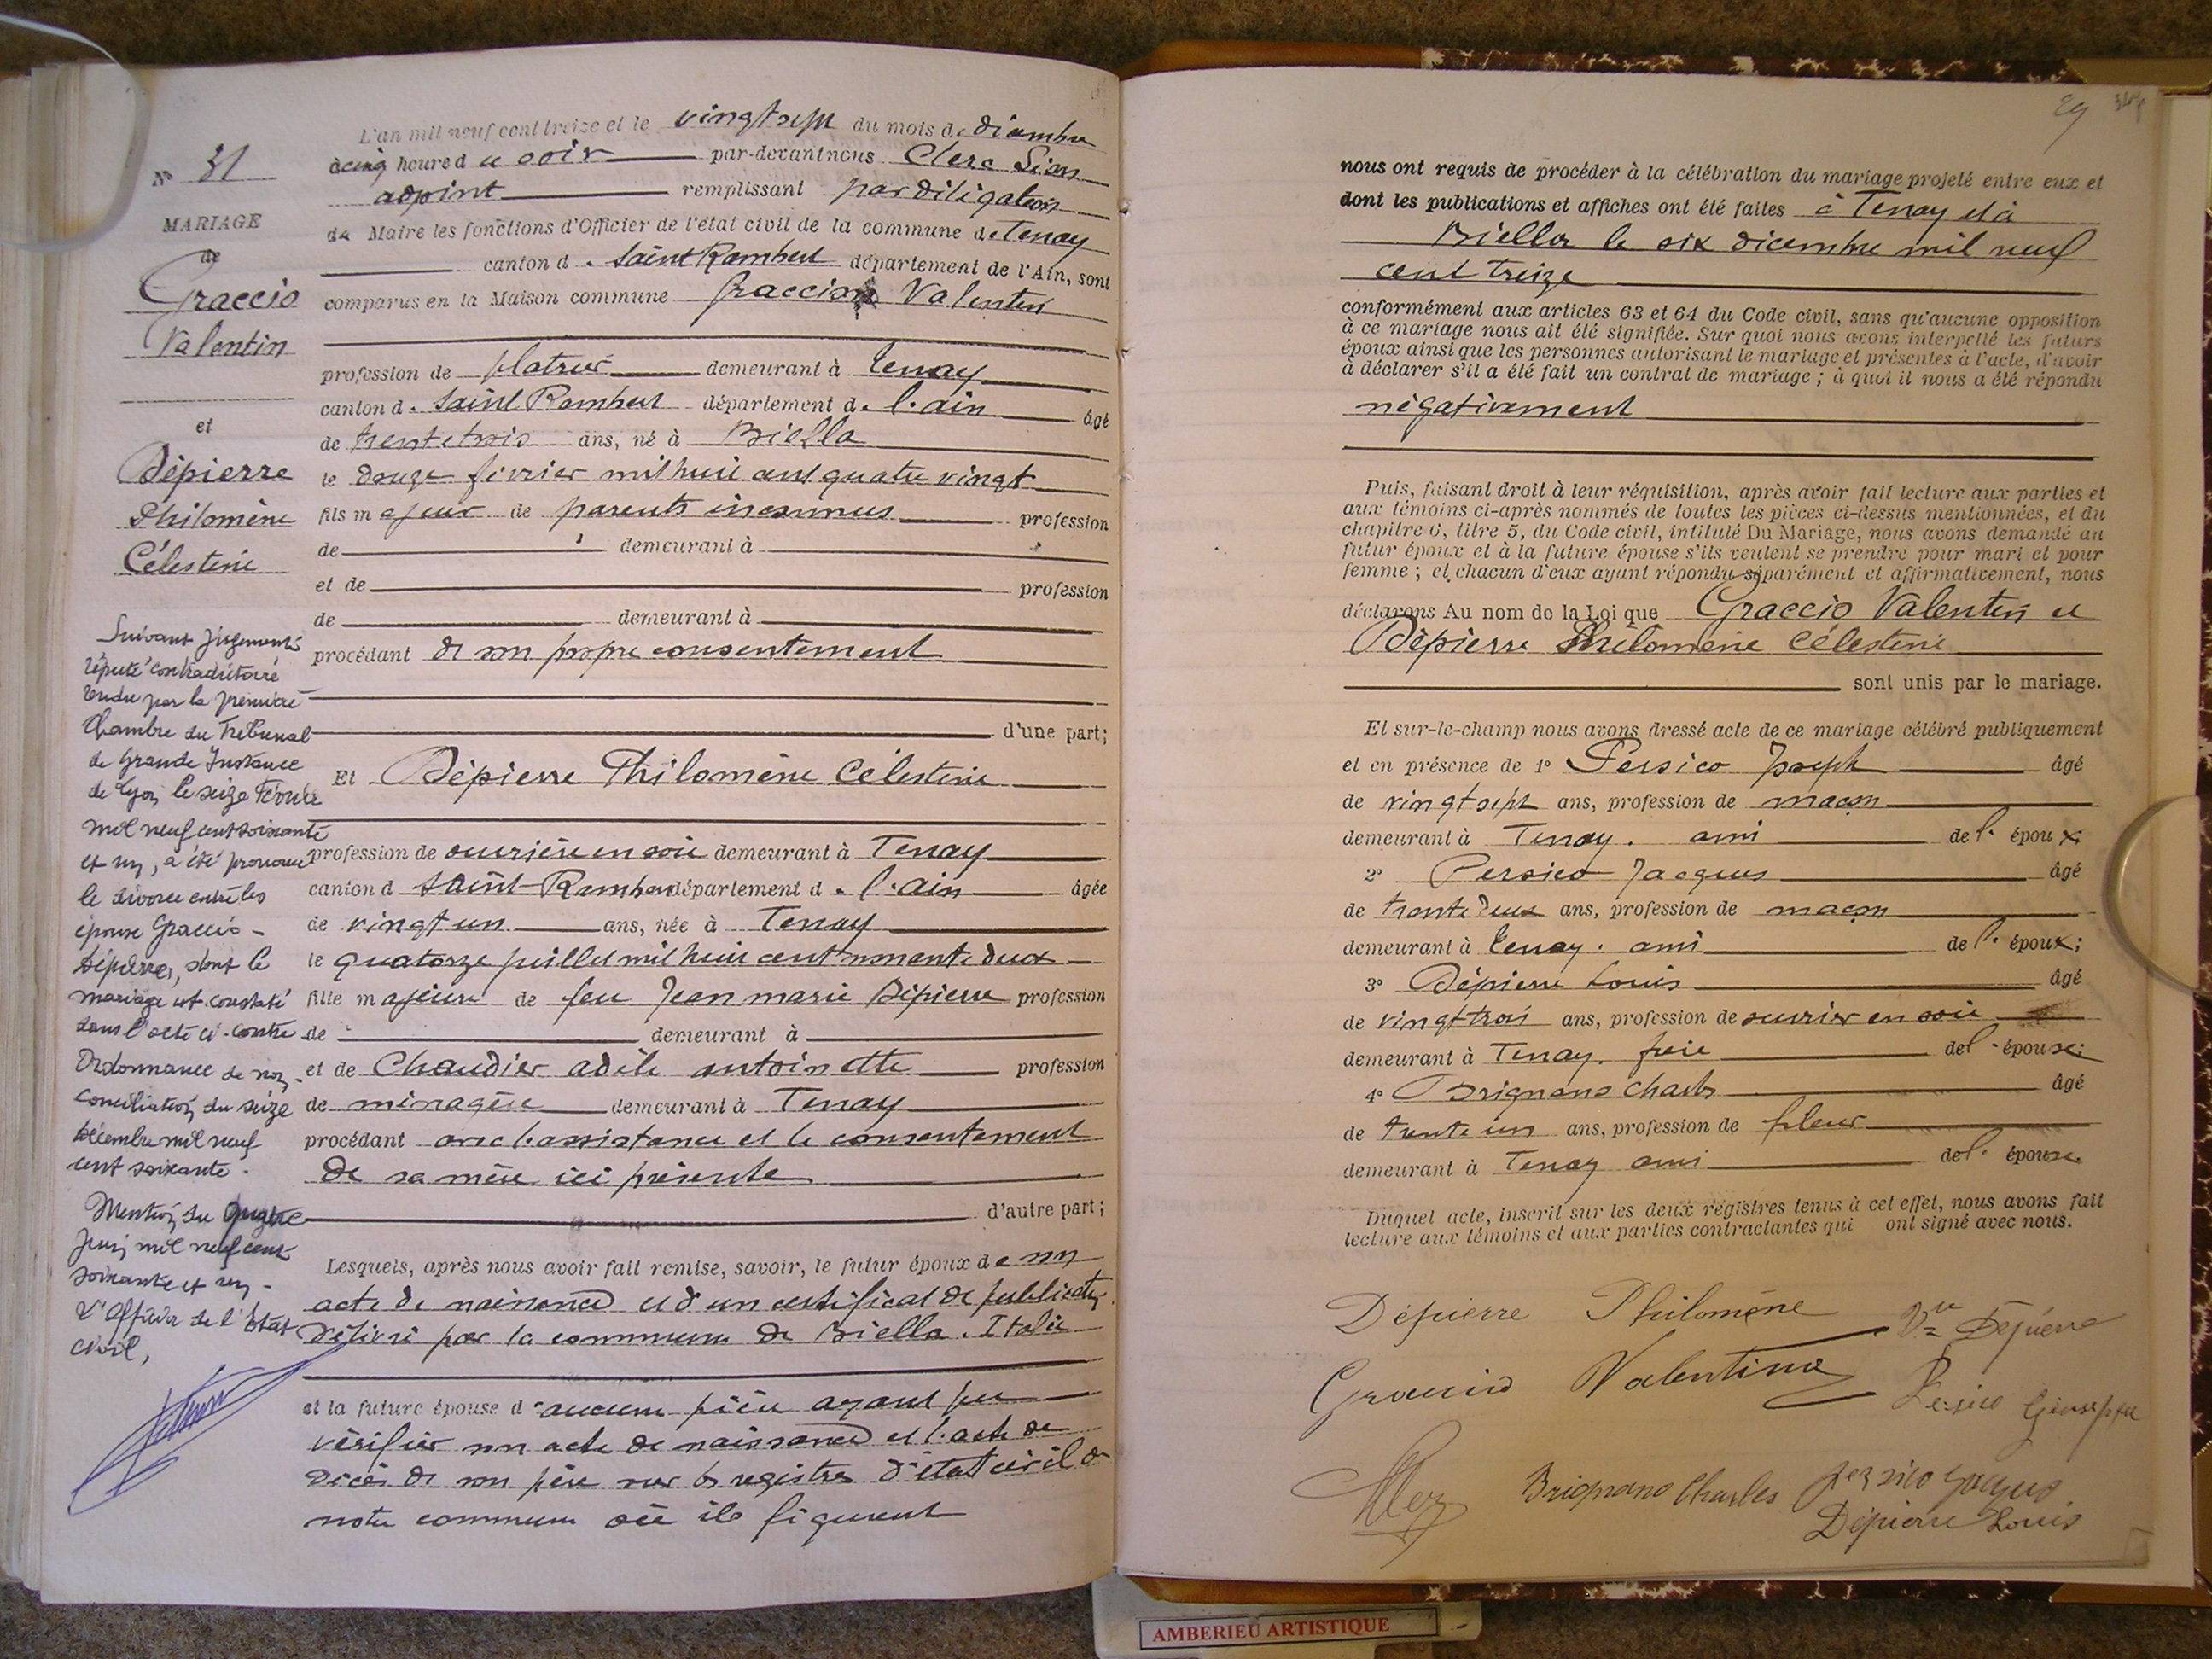 N° 31
MARIAGE
de
Graccio
Valentin
et
Dépierre
Philomène
Célestine
Suivant jugement
réputé contradictoire
rendu par la première
Chambre du Tribunal
de Grande Instance
de Lyon le seize février
mil neuf cent soixante
et un, a été prononcé
le divorce entre les
époux Graccio -
Dépierre, dont le
mariage est constaté
dans l'acte ci-contre
Ordonnance de non-
conciliation du seize
décembre mil neuf
cent soixante.
Mention du quatre
juin mil neuf cent
soixante et un -
L'Officier de l'Etat
civil,
L'an mil neuf cent treize et le vingt sept du mois de décembre
à cinq heure du soir par-devant nous Clerc
adjoint remplissant par délégation
de Maire les fonctions d'Officier de l'état civil de la commune de Tenay
canton d. Saint Rambert département de l'Ain, sont
comparus en la Maison commune Graccio Valentin
profession de platrier demeurant à Tenay
canton d. Saint Rambert département d. l'ain âgé
de trente trois ans, né à Biella
le douze février mil huit cent quatre vingt
fils majeur de parents inconnus profession
de demeurant à
et de profession
de demeurant à
procédant de son propre consentement
d'une part;
Et Dépierre Philomène Célestine
profession de ouvrière en soie demeurant à Tenay
canton d Saint-Rambert département d. l'ain âgée
de vingt un ans, née à Tenay
le quatorze juillet mil huit cent nonante deux
fille majeure de feu Jean marie Dépierre profession
de demeurant à
et de Chaudier adèle antoinette profession
de ménagère demeurant à Tenay
procédant avec l'assistance et le consentement
de sa mère ici présente
d'autre part;
Lesquels, après nous avoir fait remise, savoir, le futur époux de son
acte de naissance et d'un certificat de publication
délivré par la commune de Biella. Italie
et la future épouse d'aucune pièce ayant pu
vérifier son acte de naissance et l'acte de
décès de son père sur les registres d'état civil de
notre commune où ils figurent
29
nous ont requis de procéder à la célébration du mariage projeté entre eux et
dont les publications et affiches ont été faites à Tenay et à
Biella le six décembre mil neuf
cent treize
conformément aux articles 63 et 64 du Code civil, sans qu'aucune opposition
à ce mariage nous ait été signifiée. Sur quoi nous avons interpellé les futurs
époux ainsi que les personnes autorisant le mariage et présentes à l'acte, d'avoir
à déclarer s'il a été fait un contrat de mariage ; à quoi il nous a été répondu
négativement
Puis, faisant droit à leur réquisition, après avoir fait lecture aux parties et
aux témoins ci-après nommés de toutes les pièces ci-dessus mentionnées, et du
chapitre 6, titre 5, du Code civil, intitulé Du Mariage, nous avons demandé au
futur époux et à la future épouse s'ils veulent se prendre pour mari et pour
femme ; et chacun d'eux ayant répondu séparément et affirmativement, nous
déclarons Au nom de la Loi que Graccio Valentin et
Dépierre Philomène Célestine
sont unis par le mariage.
Et sur-le-champ nous avons dressé acte de ce mariage célébré publiquement
et en présence de 1° Persico Joseph âgé
de vingt sept ans, profession de maçon
demeurant à Tenay. ami de l' époux;
2° Persico Jacques âgé
de trente deux ans, profession de maçon
demeurant à Tenay. ami de l' époux;
3° Dépierre Louis âgé
de vingt trois ans, profession de ouvrier en soie
demeurant à Tenay. frère de l' épouse;
4° Brignano Charles âgé
de trente un ans, profession de fileur
demeurant à Tenay ami de l' épouse
Duquel acte, inscrit sur les deux régistres tenus à cet effet, nous avons fait
lecture aux témoins et aux parties contractantes qui ont signé avec nous.
Dépierre Philomène Vve Dépierre
Graccio Valentino Persico Giuseppe
Brignano Charles Persico
Dépierre Louis
AMBERIEU ARTISTIQUE